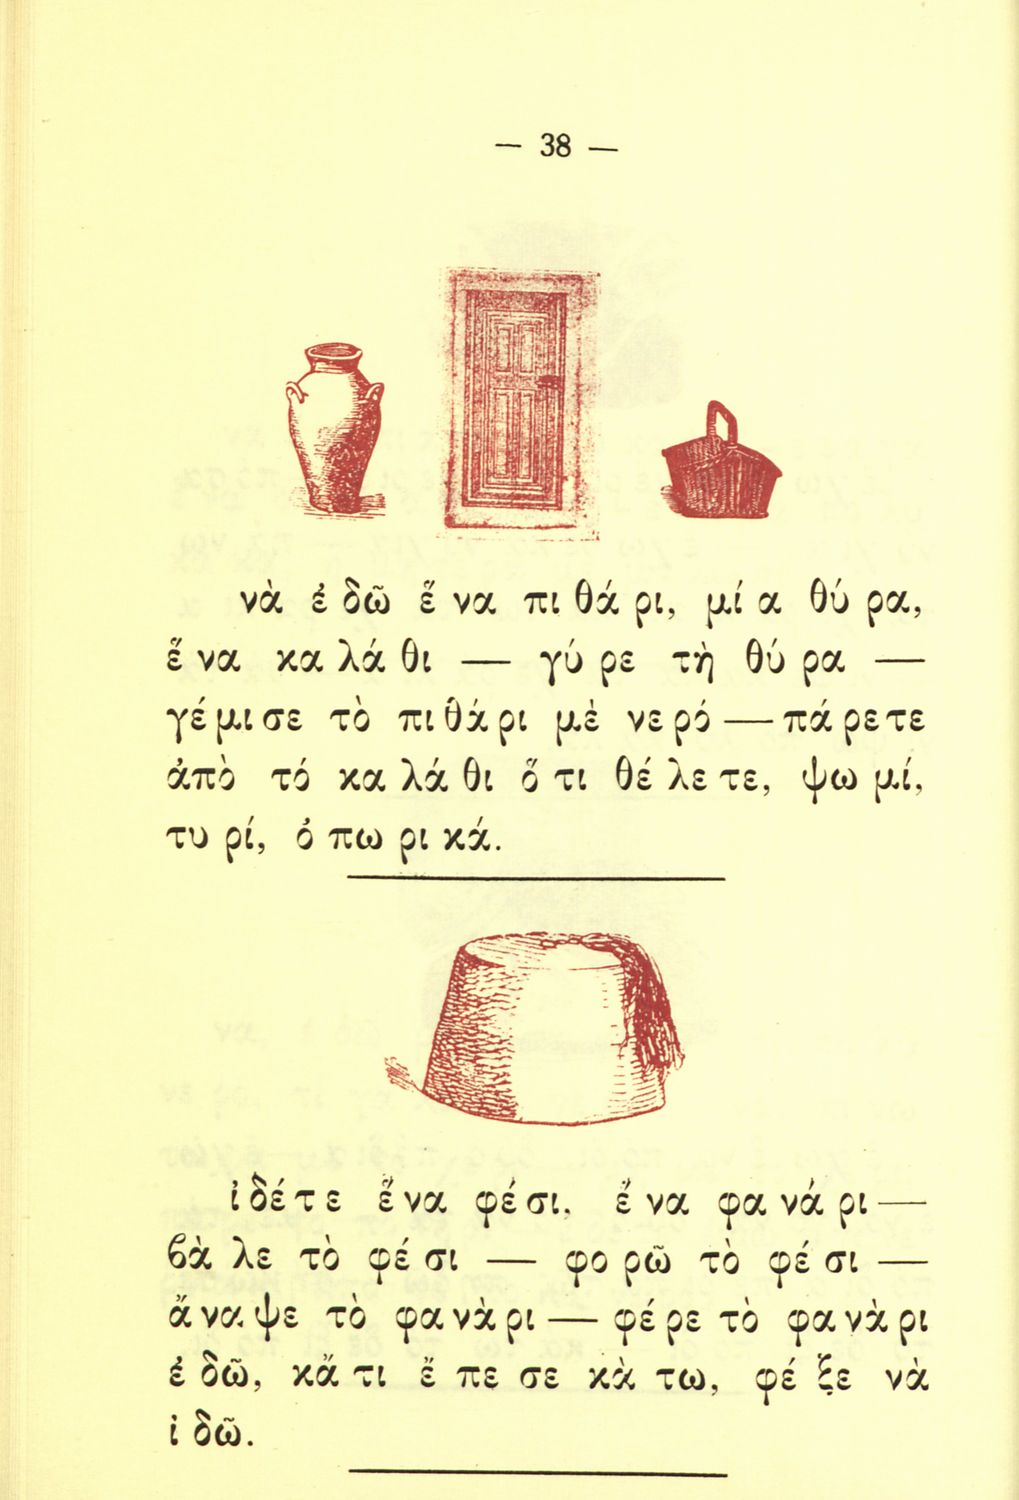 — 38 —
νὰ ἐ δῶ ἕ να πι θά ρι, μί α θύ ρα,
ἕ να κα λά θι — γύ ρε τὴ θύ ρα —
γέ μι σε τὸ πι θάρι μὲ νε ρό — πά ρε τε
ἀπὸ τό κα λά θι ὅ τι θέ λε τε, ψω μί,
τυ ρί, ὀ πω ρι κά.
ἰ δέ τ ε ἕ να φέ σι, ἕ να φα νά ρι —
βὰ λε τὸ φέ σι — φο ρῶ τὸ φέ σι —
ἄ να ψε τὸ φα νὰ ρι — φέ ρε τὸ φα νὰ ρι
ἐ δῶ, κἄ τι ἔ πε σε κὰ τω, φέ ξε νὰ
ἰ δῶ.